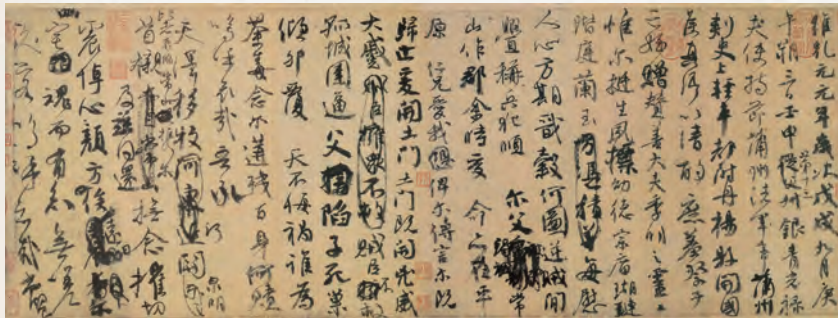 維乾元元年歲次戊戌九月庚
午朔三日壬申第十三從父銀青光祿
夫使持節蒲州諸軍事蒲州
刺史上輕車都尉丹楊縣開國
侯真卿以清酌庶羞祭于
亡姪贈贊善大夫季明之靈曰
惟爾挺生夙標幼德宗廟瑚璉
階庭蘭玉每慰
人心方期戩穀何圖逆賊間
釁稱兵犯順爾父竭誠常
山作郡余時受命亦在平
原仁兄愛我俾爾傳言爾既
歸止爰開土門土門既開凶威
大蹙賊臣不救
孤城圍逼父陷子死巢
傾卵覆天不悔禍誰為
荼毒念爾遘殘百身何贖
嗚乎哀哉吾承
天澤移牧河關泉明
比者再陷常山攜爾
首櫬及茲同還撫念摧切
震悼心顏方俟遠日
爾幽宅魂而有知無嗟
久客嗚呼哀哉尚饗